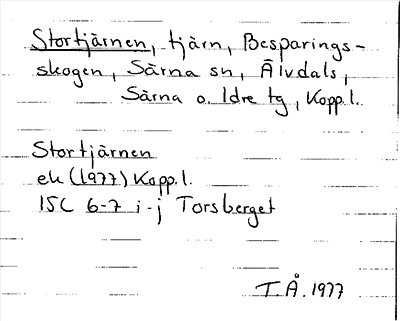 Stortjärnen, tjärn, Besparings-
skogen, Särna sn, Älvdals,
Särna o. Idre tg, Kopp.l.
Stortjärnen
ek (1977) Kopp.l.
15C 6-7 i-j Torsberget
T.Å. 1977